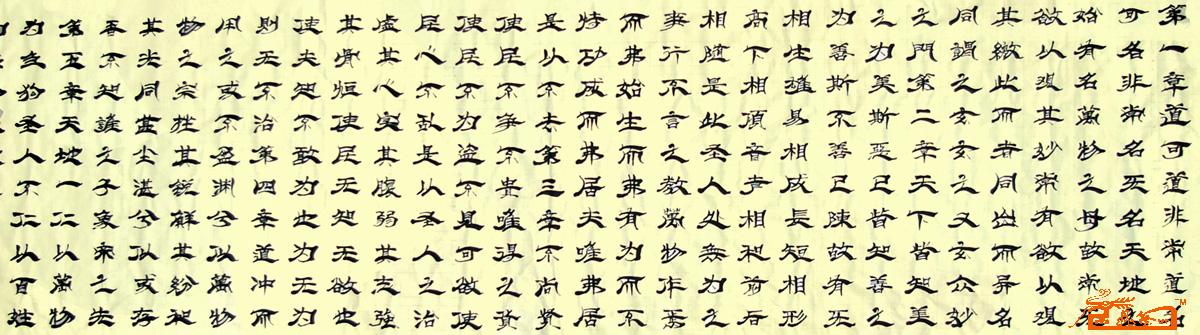 第一章道可道非常道名
可名非常名无名天地
始有名萬物之母故常
欲以观其妙常有欲以观
其徼此两者同出而異名
同謂之玄玄之又玄众妙
之門第二章天下皆知美
之为美斯惡已皆知善之
为善斯不善已陳故有无
相生難易相成長短相形
高下相頃音声相和前后
相随是此圣人处無为之
事行不言之教萬物作焉
而弗始生而弗有为而不
恃功成而弗居夫唯弗居
是以不去第三章不尚贤
使民不争不贵难得之货
使民不为盗不見可欲使
民心不乱是以圣人之治
虚其心实其腹弱其志強
其骨恒使民无知无欲也
使夫知不敢为也为无为
则无不治第四章道冲而
用之或不盈渊兮似萬物
物之宗挫其锐解其紛和
其光同其尘湛兮似或存
吾不知誰之子象帝之先
第五章天地一仁以萬物
为刍狗圣人不仁以百姓